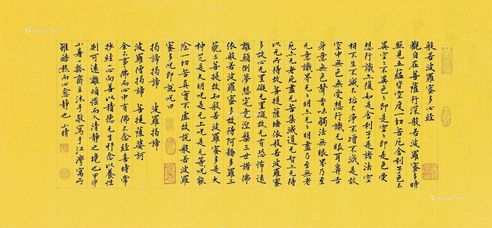 般若波羅蜜多心經
觀自在菩薩行深般若波羅蜜多時
照見五蘊皆空度一切苦厄舍利子色不
異空空不異色色即是空空即是色受
想行識亦復如是舍利子是諸法空
相不生不滅不垢不淨不增不減是故
空中無色無受想行識無眼耳鼻舌
身意無色聲香味觸法無眼界乃至
無意識界無無明亦無無明盡乃至無老
死亦無老死盡無苦集滅道無智亦無得
以無所得故菩提薩埵依般若波羅蜜
多故心無罣礙無罣礙故無有恐怖遠
離顛倒夢想究竟涅槃三世諸佛
依般若波羅蜜多故得阿耨多羅三
藐三菩提故知般若波羅蜜多是大
神咒是大明咒是無上咒是無等等咒能
除一切苦真實不虛故說般若波羅
蜜多咒即說咒曰
揭諦揭諦 波羅揭諦
波羅僧揭諦 菩提薩婆訶
余不事佛而心中有佛不念經喜時常
抄經一心向善以積德無生行念以養性
則可遠離煩惱而入清靜之境也甲申
雖酷熱而心愈靜之